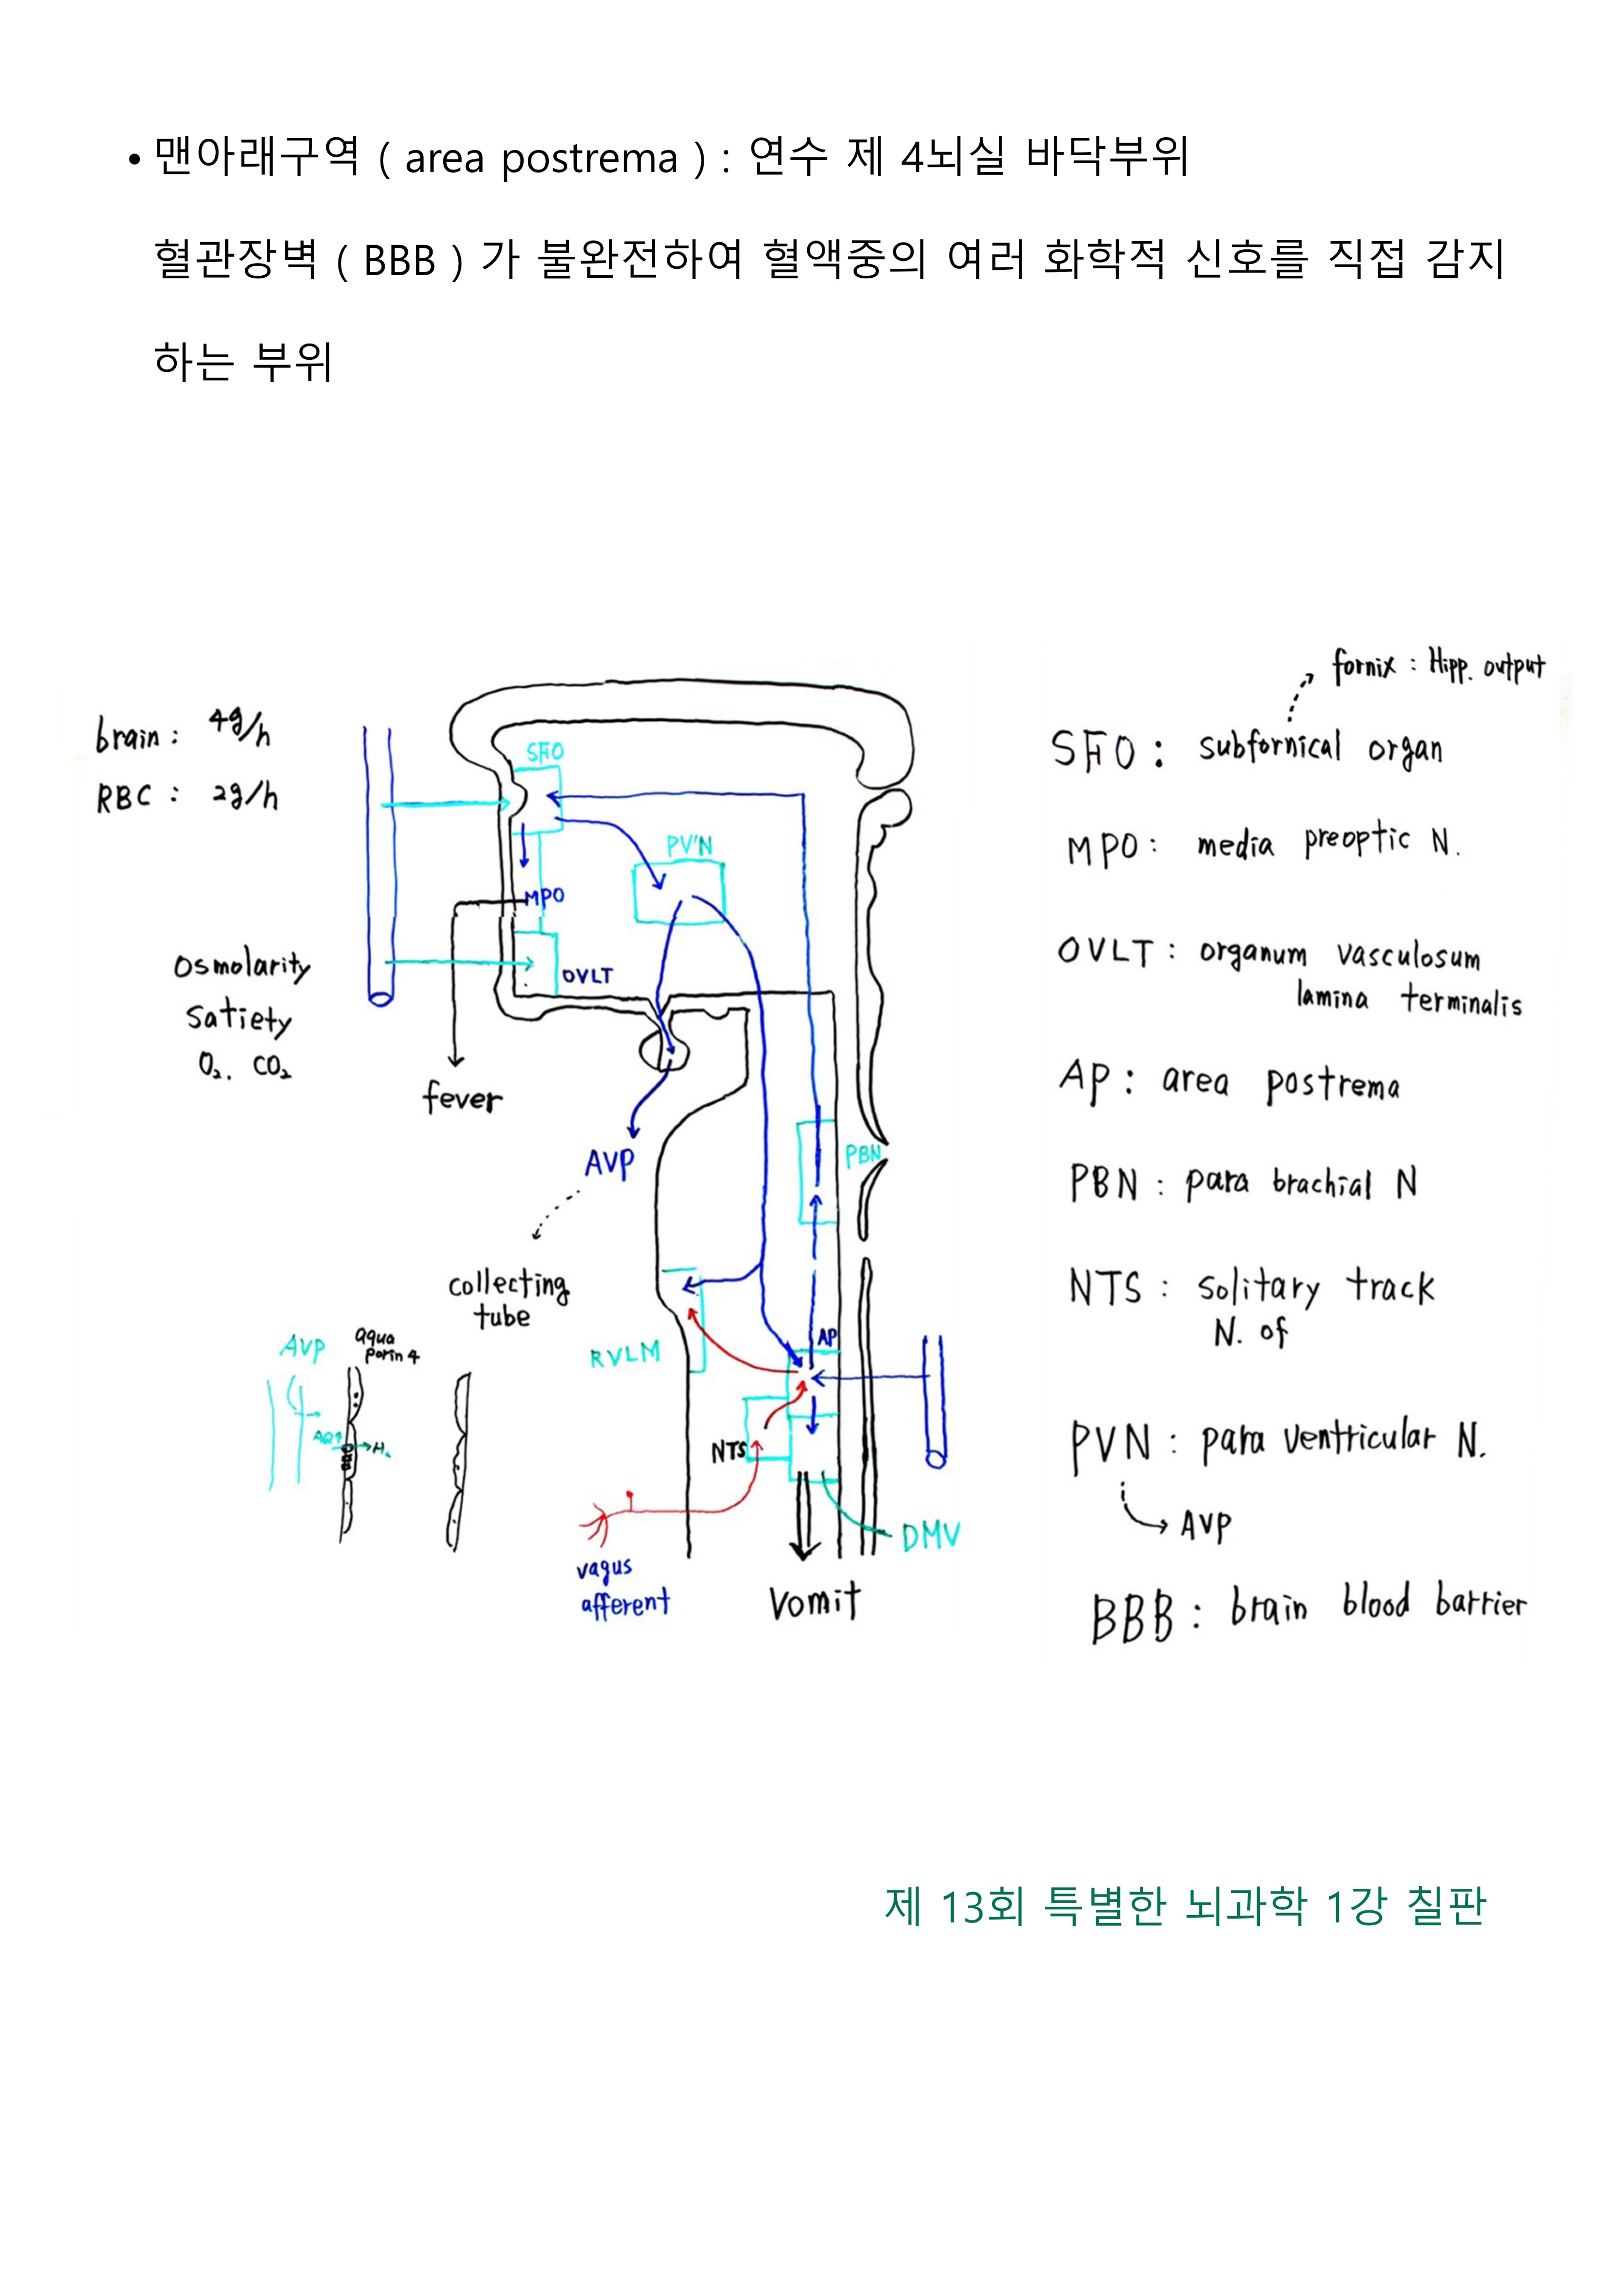 • 맨아래구역 ( area postrema ) : 연수 제 4뇌실 바닥부위
혈관장벽 ( BBB ) 가 불완전하여 혈액중의 여러 화학적 신호를 직접 감지
하는 부위
fornix : Hipp. output
brain : 4g/h
RBC : 2g/h
SFO
SFO : subfornical organ
PVN
MPO
MPO : media preoptic N.
OVLT
OVLT : organum vasculosum
lamina terminalis
Osmolarity
Satiety
O₂. CO₂
fever
AP : area postrema
AVP
PBN
PBN : para brachial N
collecting
tube
NTS : Solitary track
N. of
AVP
aqua
porin 4
RVLM
AP
NTS
PVN : para ventricular N.
AVP
DMV
vagus
afferent
Vomit
BBB : brain blood barrier
제 13회 특별한 뇌과학 1강 칠판